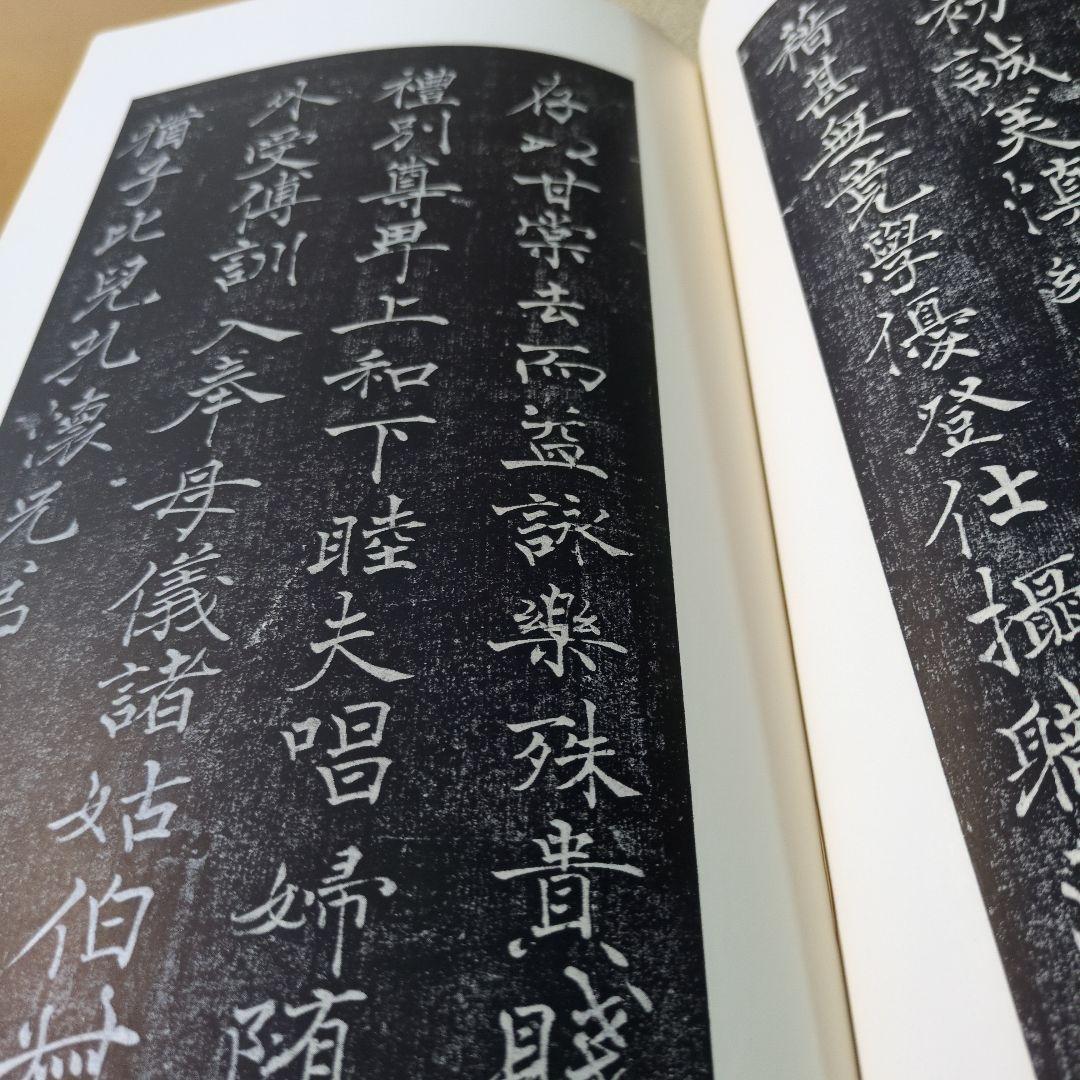 初誠美慎
籍甚無竟學優登仕攝職
存以甘棠去而益詠樂殊貴賤
禮別尊卑上和下睦夫唱婦随
外受傅訓入奉母儀諸姑伯叔
猶子比兒孔懷兄弟